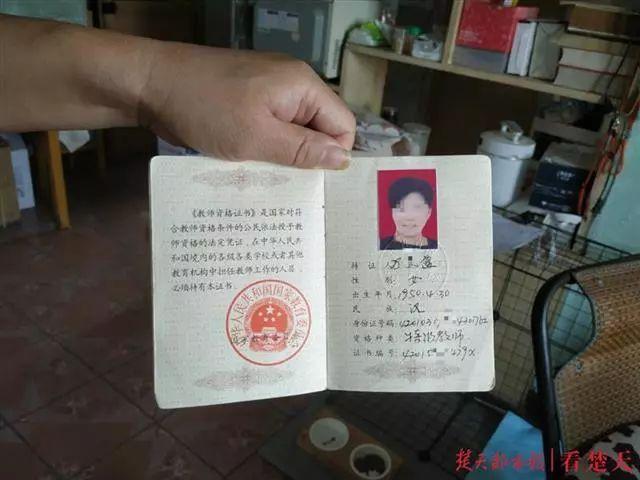 《教师资格证书》是国家对符
合教师资格条件的公民依法授予教
师资格的法定凭证，在中华人民共
和国境内的各级各类学校或者其他
教育机构中担任教师工作的人员，
必须持有本证书。
中华人民共和国国家教育委员会
持证人
性别 女
出生年月 1950.4.30
民族 汉
身份证号码
资格种类 教师
证书编号
楚天都市报|看楚天